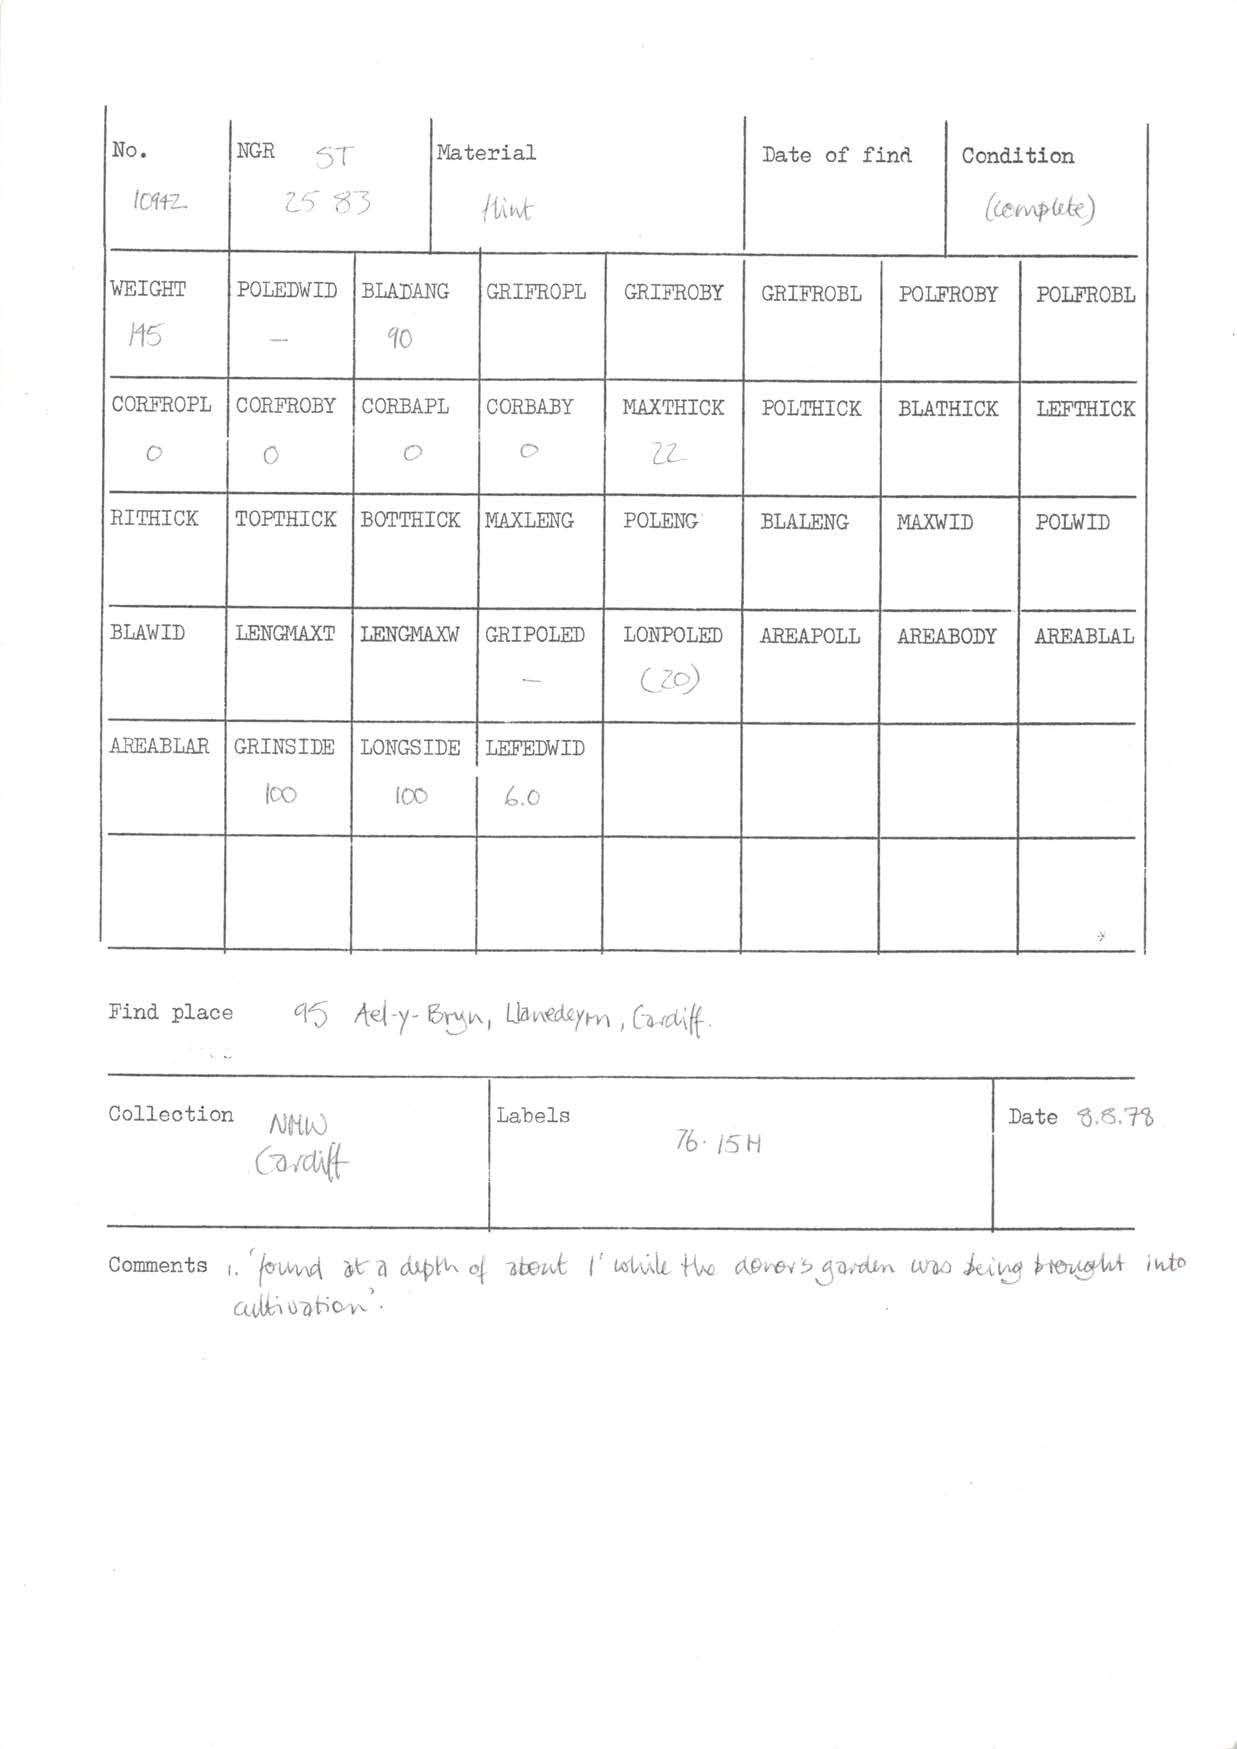 No. NGR ST Material Date of find Condition
10942 25 83 flint (complete)
WEIGHT POLEDWID BLADANG GRIFROPL GRIFROBY GRIFROBL POLFROBY POLFROBL
145 — 90
CORFROPL CORFROBY CORBAPL CORBABY MAXTHICK POLTHICK BLATHICK LEFTHICK
0 0 0 0 22
RITHICK TOPTHICK BOTTHICK MAXLENG POLENG BLALENG MAXWID POLWID
BLAWID LENGMAXT LENGMAXW GRIPOLED LONPOLED AREAPOLL AREABODY AREABLAL
— (20)
AREABLAR GRINSIDE LONGSIDE LEFEDWID
100 100 6.0
Find place 95 Ael-y-Bryn, Llanedeyrn, Cardiff.
Collection NMW Labels 76.15H Date 8.8.78
Cardiff
Comments 1. 'found at a depth of about 1' while the donor's garden was being brought into
cultivation'.